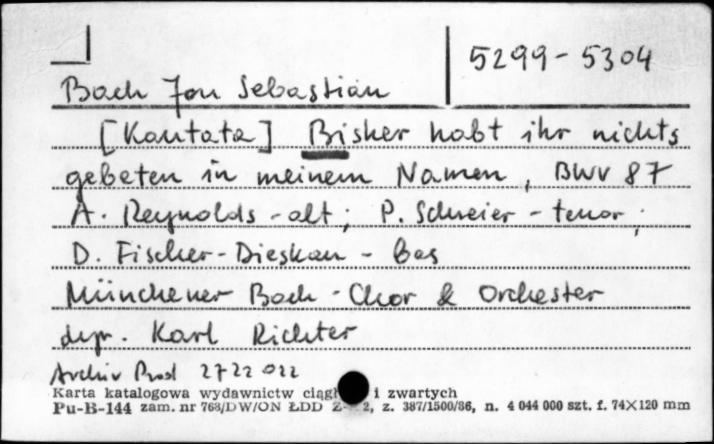 5299-5304
Bach Jan Sebastian
[Kantata] Bisher habt ihr nichts
gebeten in meinem Namen, BWV 87
A. Reynolds - alt; P. Schreier - tenor;
D. Fischer-Dieskau - bas
Münchener Bach-Chor & Orchester
dyr. Karl Richter
Archiv Prod 2722 022
Karta katalogowa wydawnictw i zwartych
Pu-B-144 zam. nr 763/DW/ON ŁDD 2, z. 387/1500/86, n. 4 044 000 szt. f. 74×120 mm